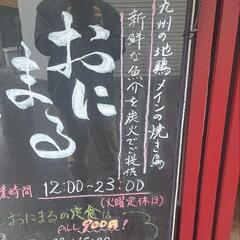 九州の地鶏メインの焼き鳥
新鮮な魚介を炭火でご提供
おにまる
業時間 12:00~23:00
(火曜定休日)
おにまるの定食は
ALL 900円!